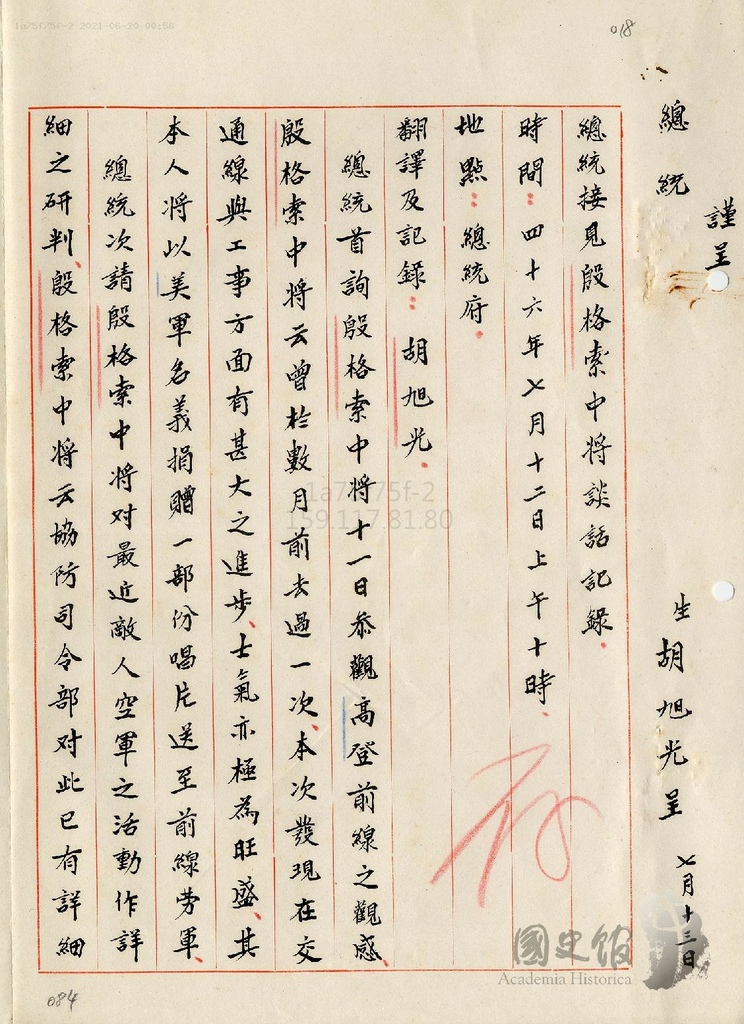 1a75f75f-2 2021-06-20 00:58
018
謹呈
總統
生胡旭光呈 七月十三日
總統接見殷格索中将談話記錄.
時間：四十六年七月十二日上午十時、
地點：總統府.
翻譯及記錄：胡旭光.
總統首詢殷格索中将十一日叅觀高登前線之觀感
殷格索中将云曾於數月前去過一次、本次發現在交
通線與工事方面有甚大之進步、士氣亦極為旺盛、其
本人将以美軍名義捐贈一部份唱片送至前線劳軍、
總統次請殷格索中将对最近敵人空軍之活動作詳
細之研判、殷格索中将云協防司令部对此已有詳細
1a75f75f-2
159.117.81.80
國史館
Academia Historica
084